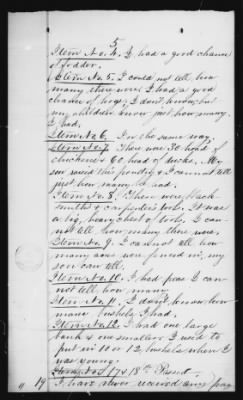 5
Item No. 4. I had a good chance
of fodder.
Item No. 5. I could not tell how
many there were. I had a good
chance of hogs, I dont know, but
my children know just how many
I had.
Item No. 6. In the same way.
Item No. 7. There was 30 head of
chickens & 60 head of ducks. My
son raised this poultry & I cannot tell
just how many he had.
Item No. 8. There were black-
smith's & carpenters tools. It was
a big, heavy chest of tools, I can
not tell how many there were.
Item No. 9. I cannot tell how
many acres were fenced in, my
son can tell.
Item No. 10. I had peas I can
not tell how many.
Item No. 11. I don't know how
many bushels I had.
Item No. 12. I had one large
bank & one smaller, I used to
put in 10 or 12 bushels when I
was young.
18th Resent.
" 19 I have never received any pay